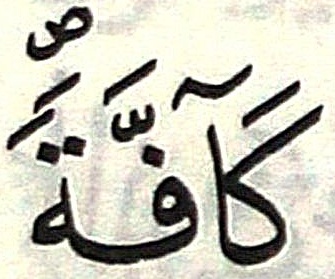 كَآفَّةً ص